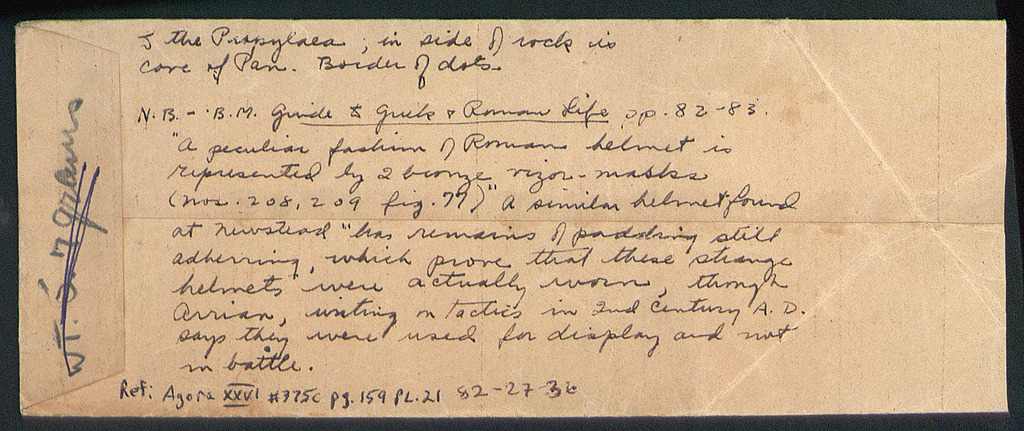 of the Propylaea ; in side of rock is
cave of Pan. Border of dots.
N.B. - B.M. Guide to Greek & Roman Life pp. 82-83.
"A peculiar fashion of Roman helmet is
represented by 2 bronze vizor-masks
(nos. 208, 209 fig. 77)" A similar helmet found
at Newstead "has remains of padding still
adherring, which prove that these strange
helmets were actually worn, though
Arrian, writing on Tactics in 2nd Century A.D.
says they were used for display and not
in battle.
Ref: Agora XXVI #375c pg. 159 PL. 21 82-27-36
WT.